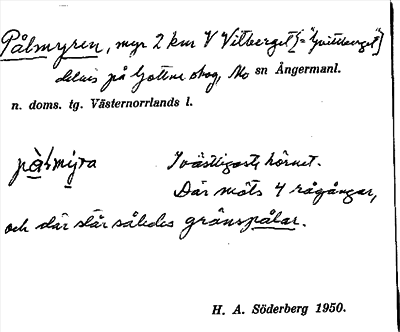 Pålmyren, myr 2 km V Vitberget [="Hvittberget"]
delvis på Gottne skog, Mo sn Ångermanl.
n. doms. tg. Västernorrlands l.
pàlmýra I västligaste hörnet.
Där möts 4 rågångar,
och där står således gränspålar.
H. A. Söderberg 1950.